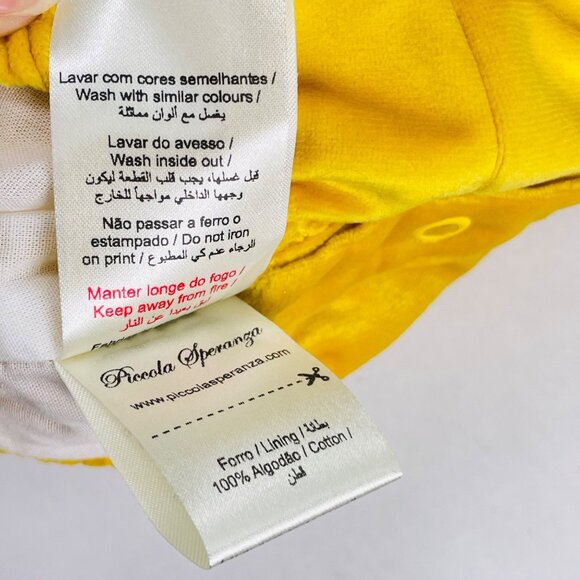 Lavar com cores semelhantes /
Wash with similar colours /
يغسل مع ألوان مماثلة
Lavar do avesso /
Wash inside out /
قبل غسلها، يجب قلب القطعة ليكون
وجهها الداخلي مواجهاً للخارج
Não passar a ferro o
estampado / Do not iron
on print / الرجاء عدم كي المطبوع
Manter longe do fogo /
Keep away from fire /
أبق بعيدا عن النار
Piccola Speranza
www.piccolasperanza.com
Forro / Lining / بطانة
100% Algodão / Cotton /
القطن